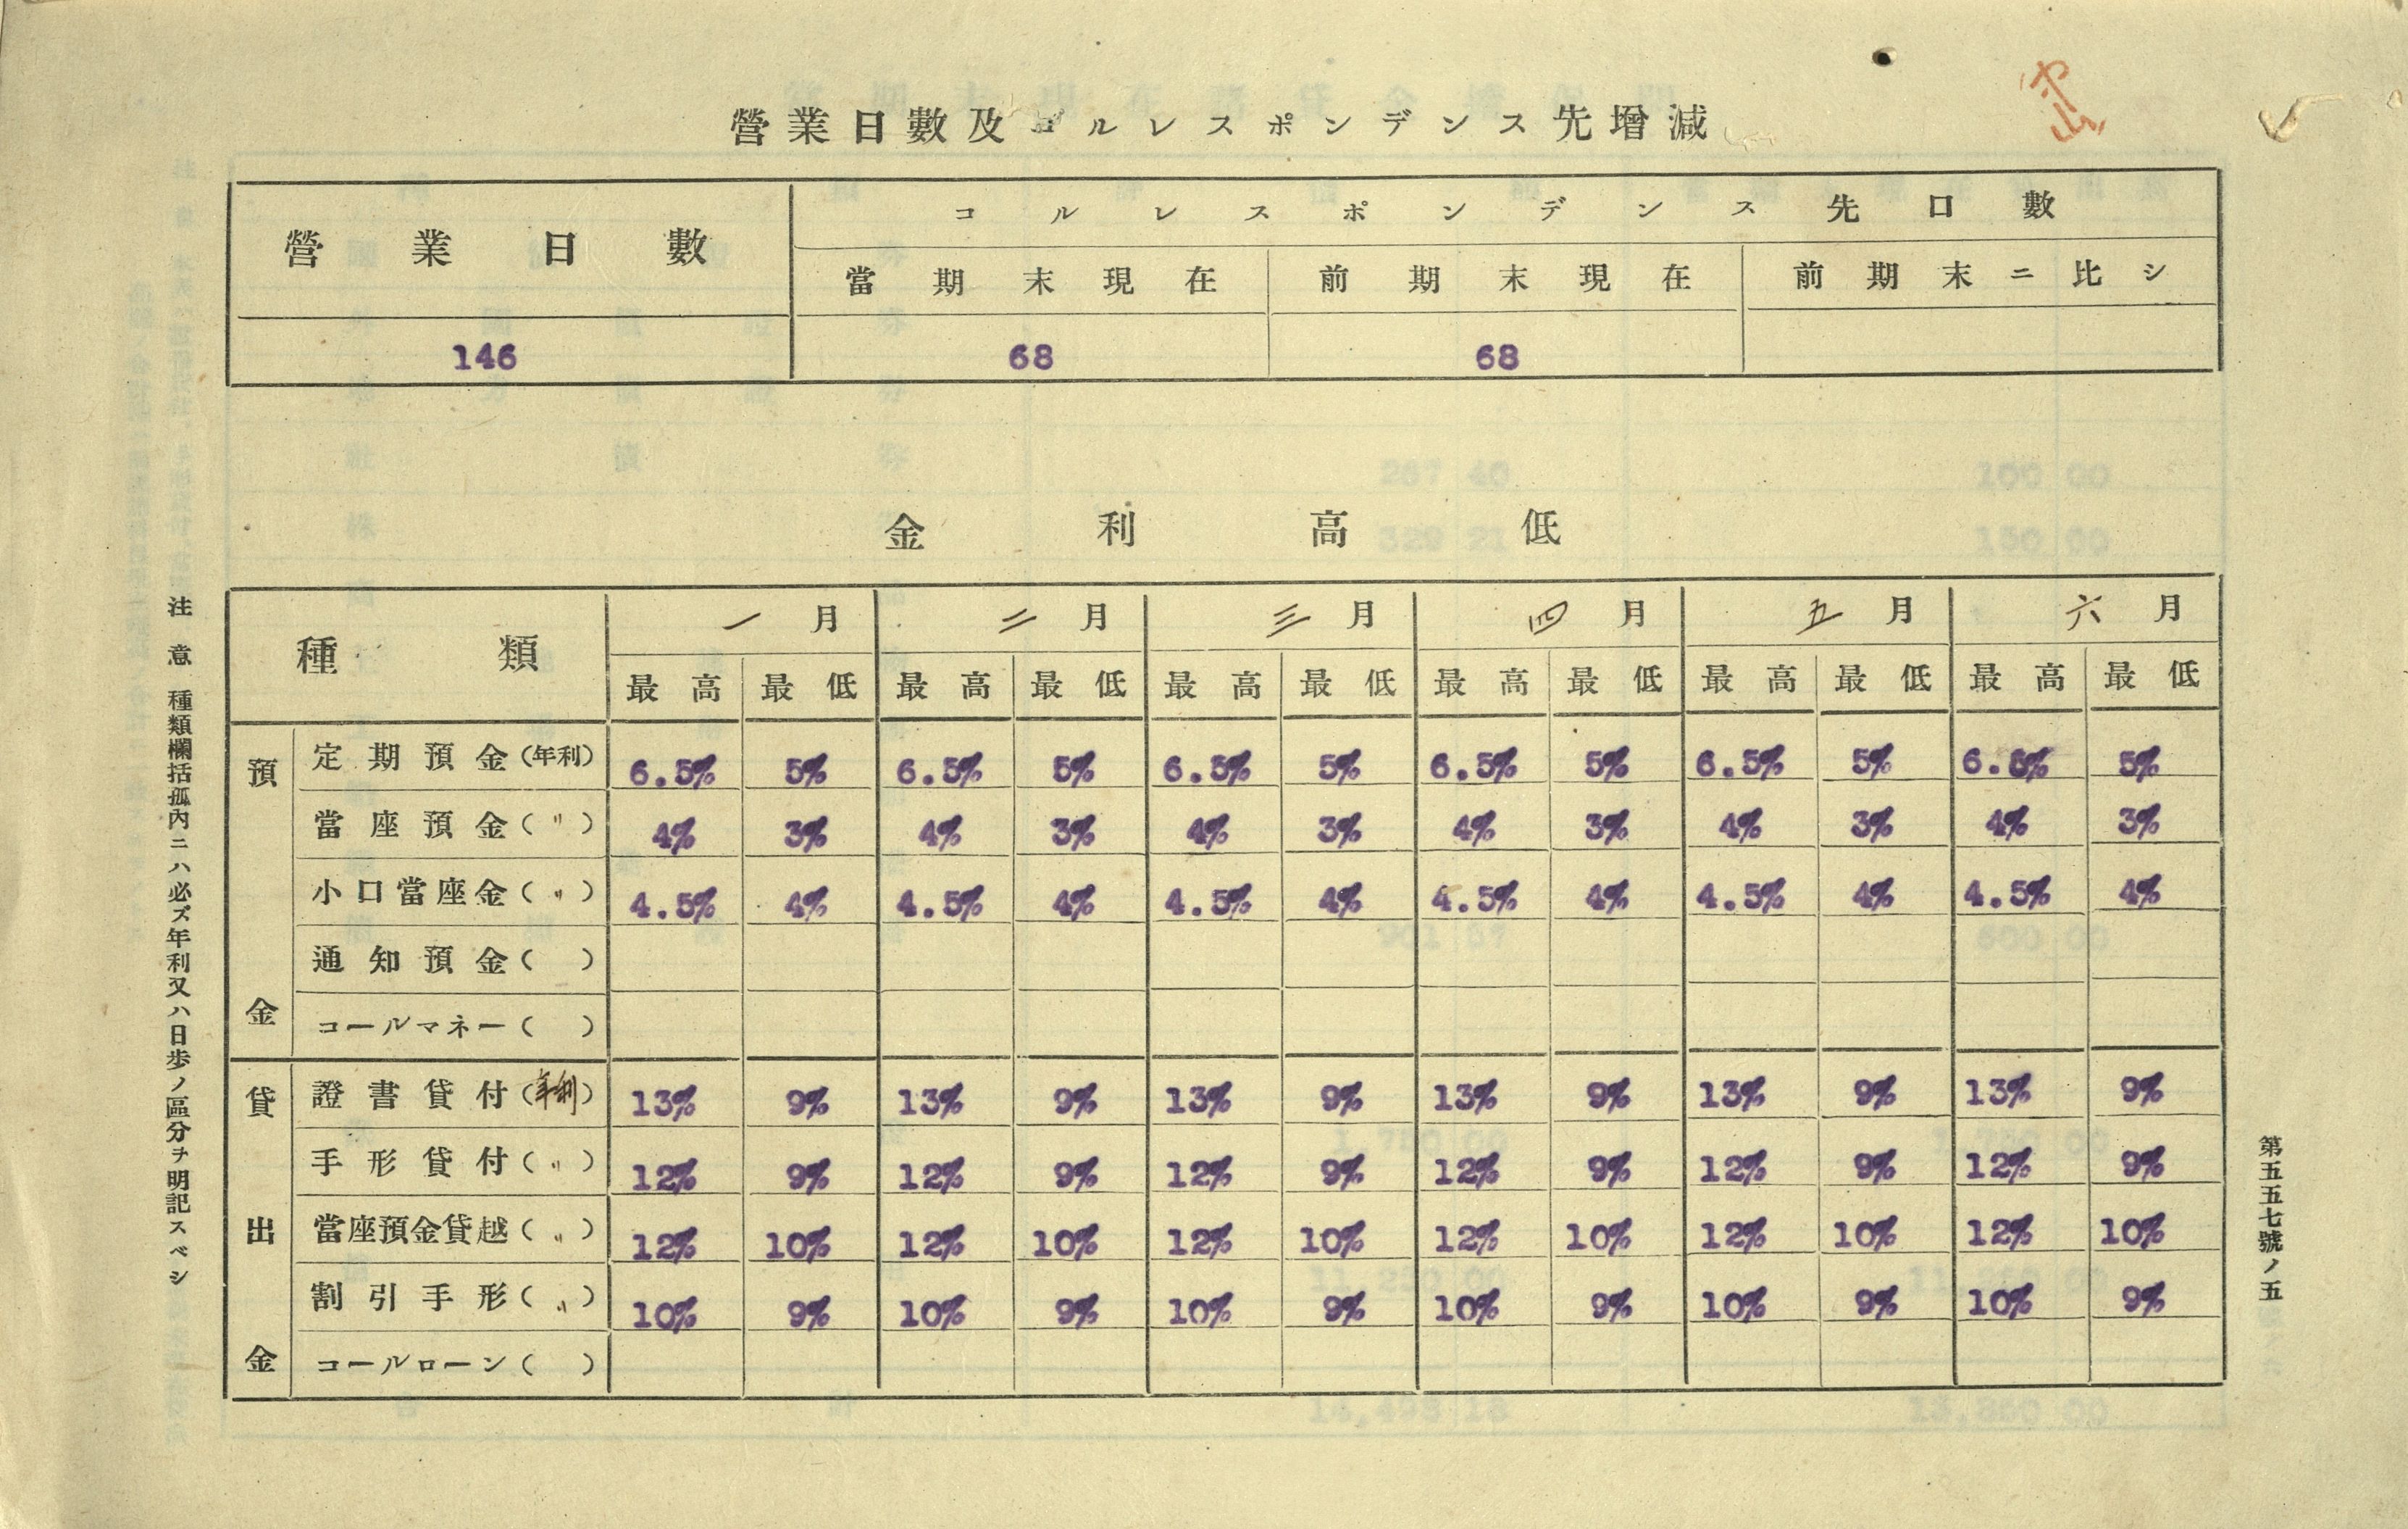 營業日數及コルレスポンデンス先增減
營業日數 コルレスポンデンス先口數
當期末現在 前期末現在 前期末ニ比シ
146 68 68
金利高低
種類 一月 二月 三月 四月 五月 六月
最高 最低 最高 最低 最高 最低 最高 最低 最高 最低 最高 最低
預金
定期預金(年利) 6.5% 5% 6.5% 5% 6.5% 5% 6.5% 5% 6.5% 5% 6.5% 5%
當座預金(〃) 4% 3% 4% 3% 4% 3% 4% 3% 4% 3% 4% 3%
小口當座金(〃) 4.5% 4% 4.5% 4% 4.5% 4% 4.5% 4% 4.5% 4% 4.5% 4%
通知預金( )
コールマネー( )
貸出金
證書貸付(年利) 13% 9% 13% 9% 13% 9% 13% 9% 13% 9% 13% 9%
手形貸付(〃) 12% 9% 12% 9% 12% 9% 12% 9% 12% 9% 12% 9%
當座預金貸越(〃) 12% 10% 12% 10% 12% 10% 12% 10% 12% 10% 12% 10%
割引手形(〃) 10% 9% 10% 9% 10% 9% 10% 9% 10% 9% 10% 9%
コールローン( )
注意 種類欄括孤內ニハ必ズ年利又ハ日步ノ區分ヲ明記スベシ
第五五七號ノ五